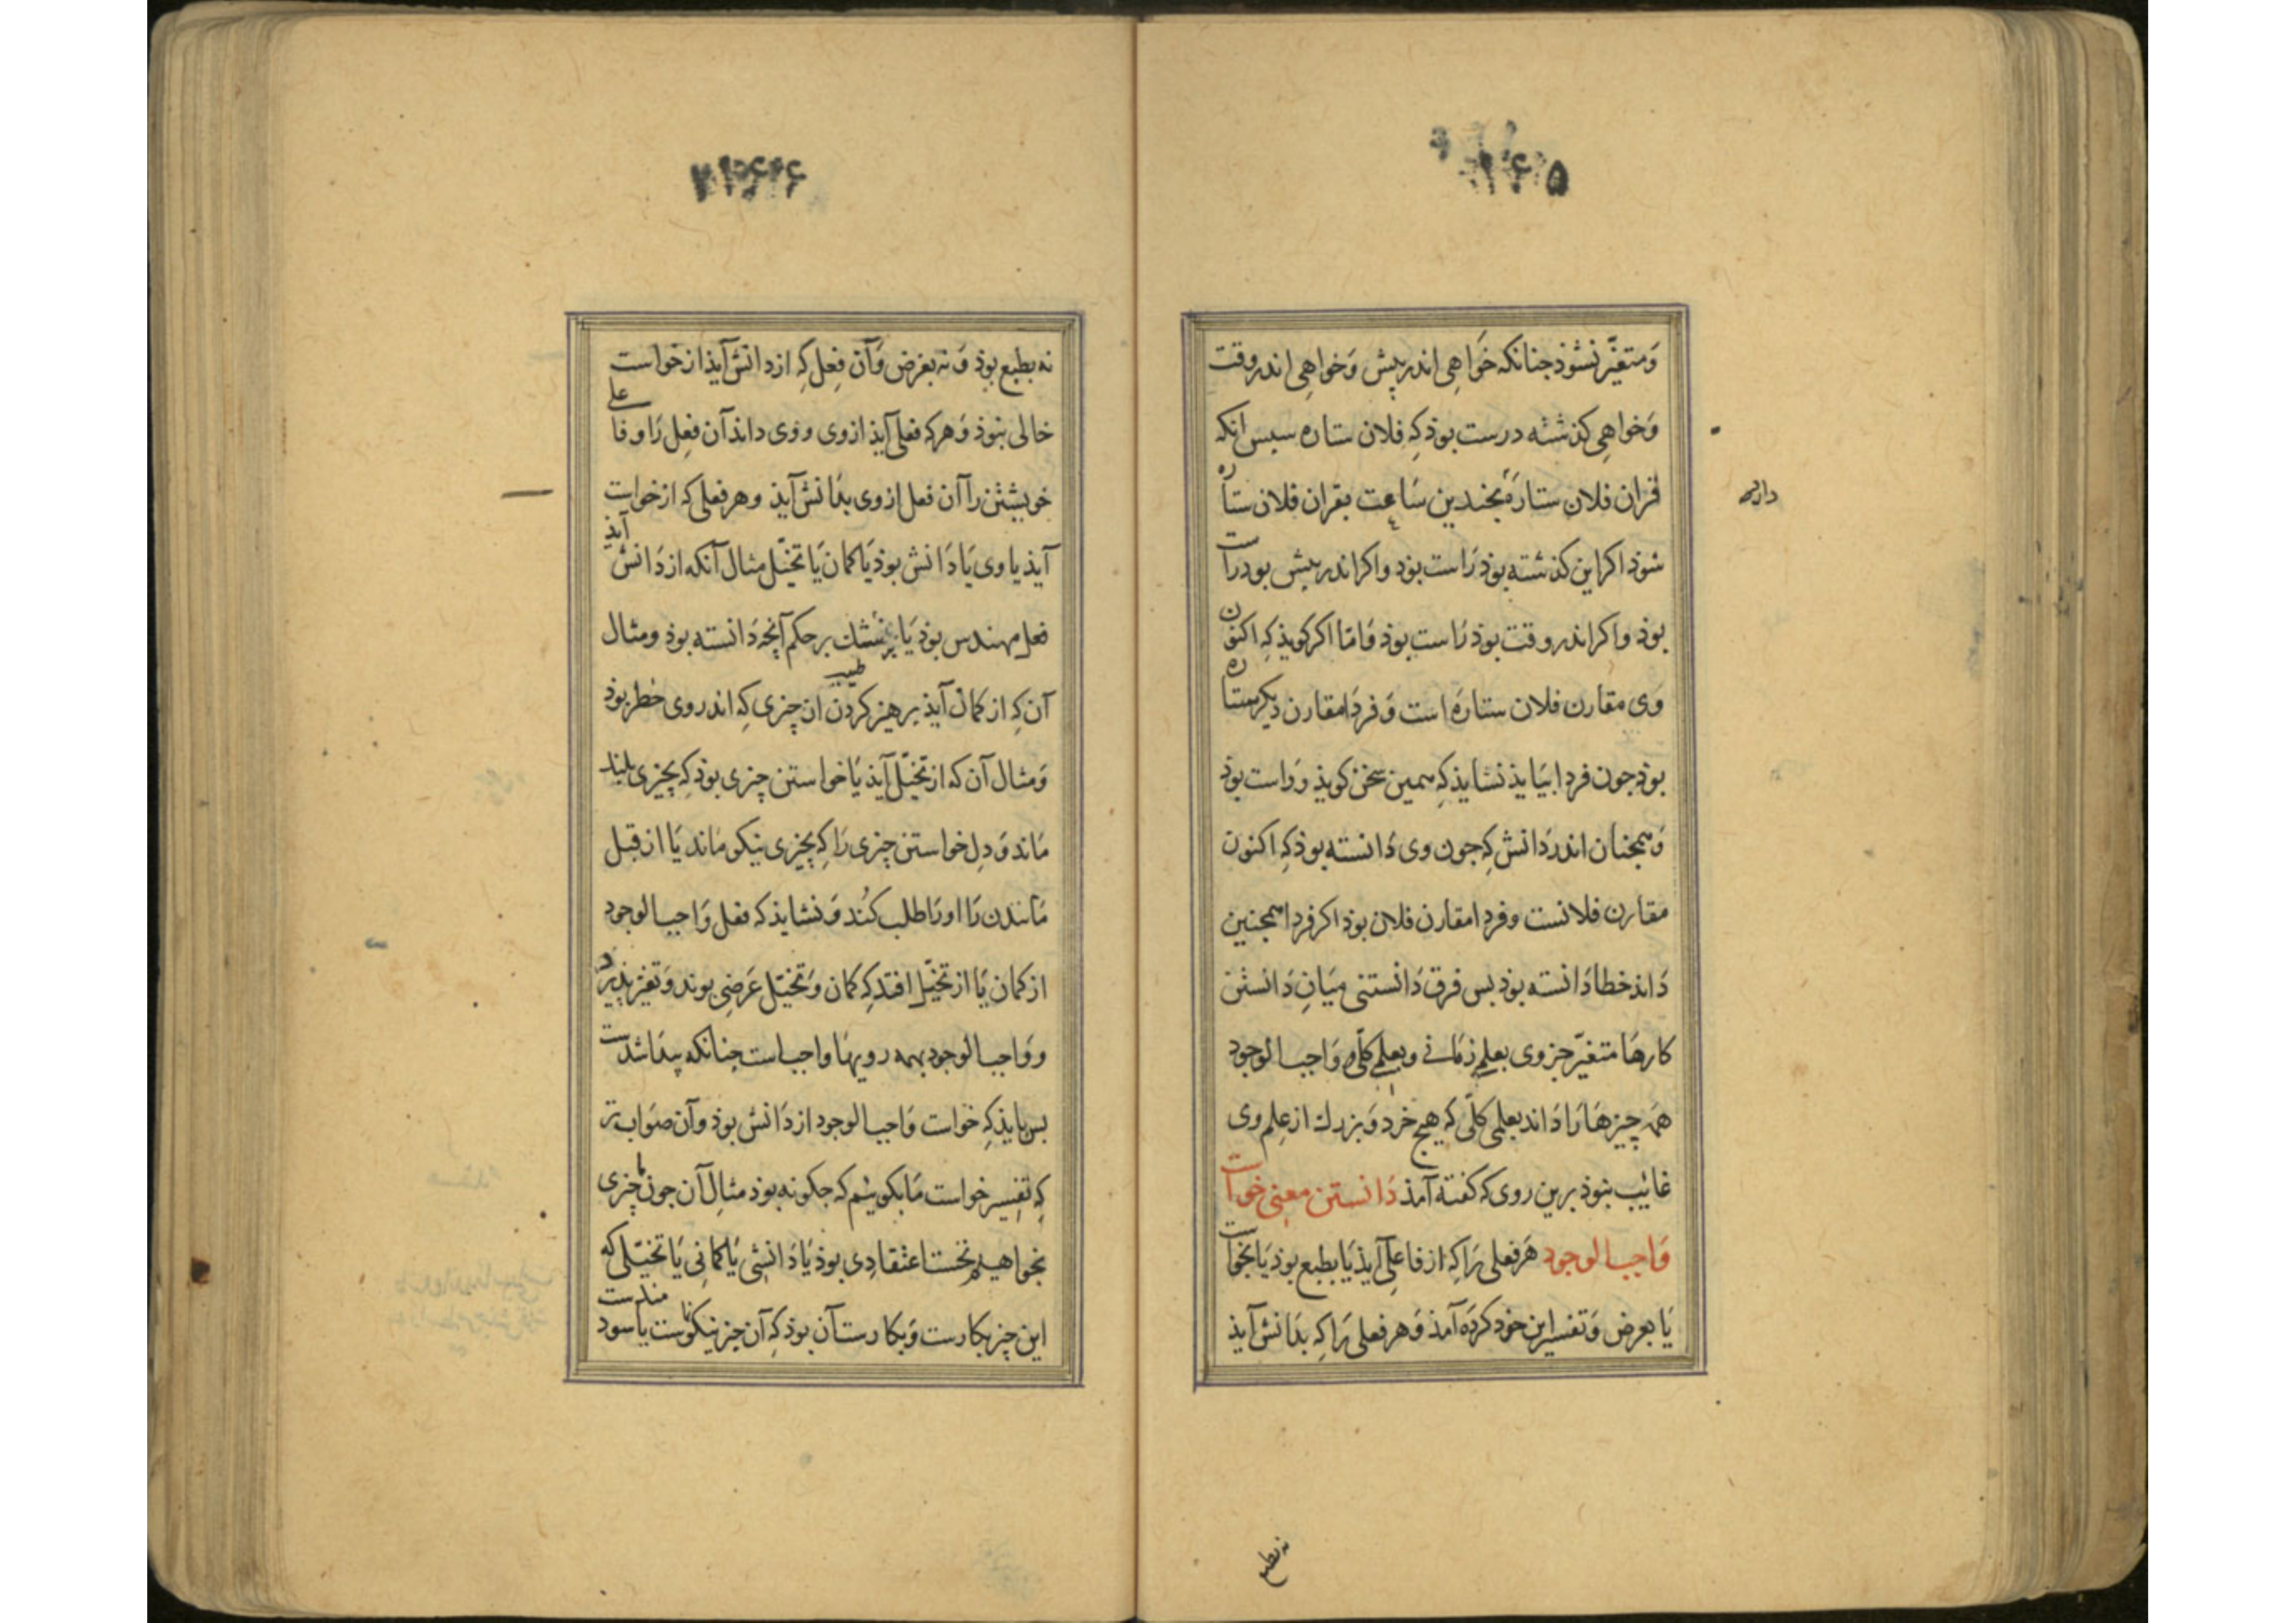 ۱۶۵
ومتغیّر نشوذ جنانکه خواهی اندر پیش وخواهی اندر وقت
وخواهی کذشته درست بوذ که فلان ستاره سپس انکه
قران فلان ستاره بجندین ساعت بقران فلان ستاره
شوذ اکر این کذشته بوذ راست بوذ واکر اندر پیش بود راست
بوذ واکر اندر وقت بوذ راست بوذ فامّا اکر کویذ که اکنون
وی مقارن فلان ستاره است وفردا مقارن دیکر ستاره
بوذ جون فردا بیایذ نشایذ که همین سخن کویذ وراست بوذ
وهمجنان اندر دانش که جون وی دانسته بوذ که اکنون
مقارن فلانست وفردا مقارن فلان بوذ اکر فردا همجنین
داند خطا دانسته بوذ بس فرق دانستنی میان دانستن
کارها متغیّر جزوی بعلم زمانی وبعلمی کلّی و واجب الوجود
همه چیزها را داند بعلمی کلّی که هیچ خرد وبزرك از علم وی
غائب نبوذ برین روی که کفته آمذ دانستن معنی خواست
واجب الوجود هر فعلی را که از فاعلی آیذ یا بطبع بوذ یا بخواست
یا بعرض وتفسیر این خود کرده آمذ وهر فعلی را که بدانش آیذ
نه بطبع
نه بطبع بوذ ونه بغرض وآن فعل که از دانش آیذ از خواست
خالی نبوذ وهر که فعلی آیذ از وی ووی داند آن فعل را وفاعلی
خویشتن را آن فعل از وی بدانش آیذ وهر فعلی که از خواست
آیذ یا وی یا دانش بوذ یا کمان یا تخیّل مثال آنکه از دانش آیذ
فعل مهندس بوذ یا بزشك بر حکم آنچه دانسته بوذ ومثال
طبیب
آن که از کمان آیذ برهیز کردن از چیزی که اندر وی خطر بوذ
ومثال آن که از تخیّل آیذ یا خواستن چیزی بوذ که بچیزی بلید
ماند ودل خواستن چیزی را که بچیزی نیکو ماند یا از قبل
مانندن را اورا طلب کند ونشایذ که فعل واجب الوجود
از کمان یا از تخیّل افتد که کمان وتخیّل عرضی بوند وتغیّر پذیرد
وواجب الوجود بهمه رویها واجبست جنانکه پیدا شدست
بس بایذ که خواست واجب الوجود از دانش بوذ وآن صواب تر
که تفسیر خواست ما بکوئیم که جکونه بوذ مثال آن جون ما چیزی
بخواهیم نخست اعتقادی بوذ یا دانشی یا کمانی یا تخیّلی که
این چیز بکارست وبکارست آن بوذ که آن چیز نیکوست یا سودمندست